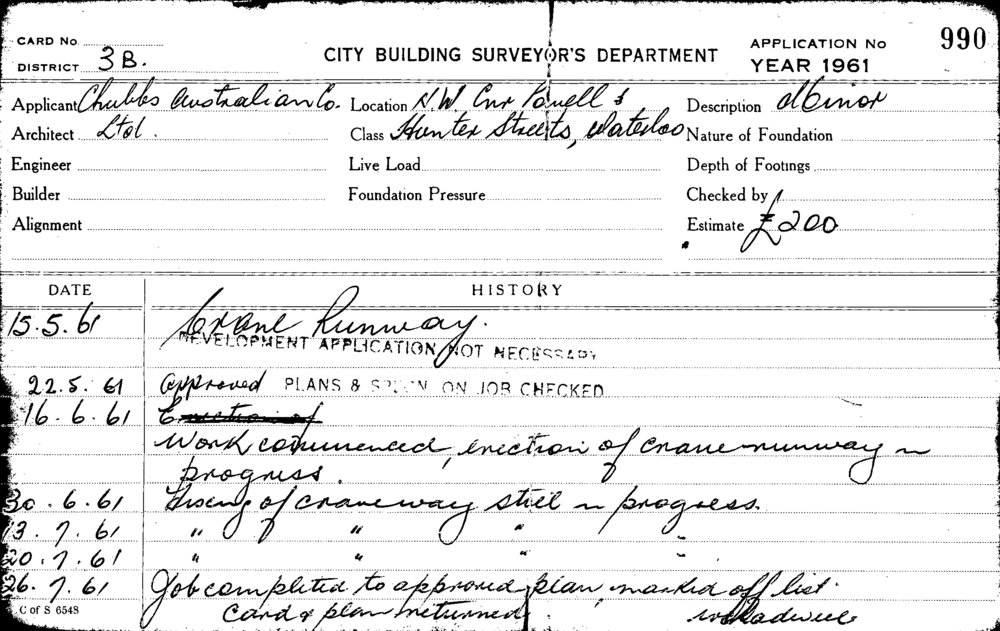 CARD No.
DISTRICT 3B.
CITY BUILDING SURVEYOR'S DEPARTMENT
APPLICATION No 990
YEAR 1961
Applicant Chubbs Australian Co. Location N.W. Cnr Powell & Description Minor
Architect Ltd. Class Hunter Streets, Waterloo Nature of Foundation
Engineer Live Load Depth of Footings
Builder Foundation Pressure Checked by
Alignment Estimate £200
DATE HISTORY
15.5.61 Crane Runway.
DEVELOPMENT APPLICATION NOT NECESSARY
22.5.61 Approved PLANS & ON JOB CHECKED
16.6.61 Erection of
Work commenced, erection of crane runway in
progress.
30.6.61 Fixing of craneway still in progress.
13.7.61 " " " "
20.7.61 " " " "
26.7.61 Job completed to approved plan, marked off list.
Card & plan returned.
C of S 6548